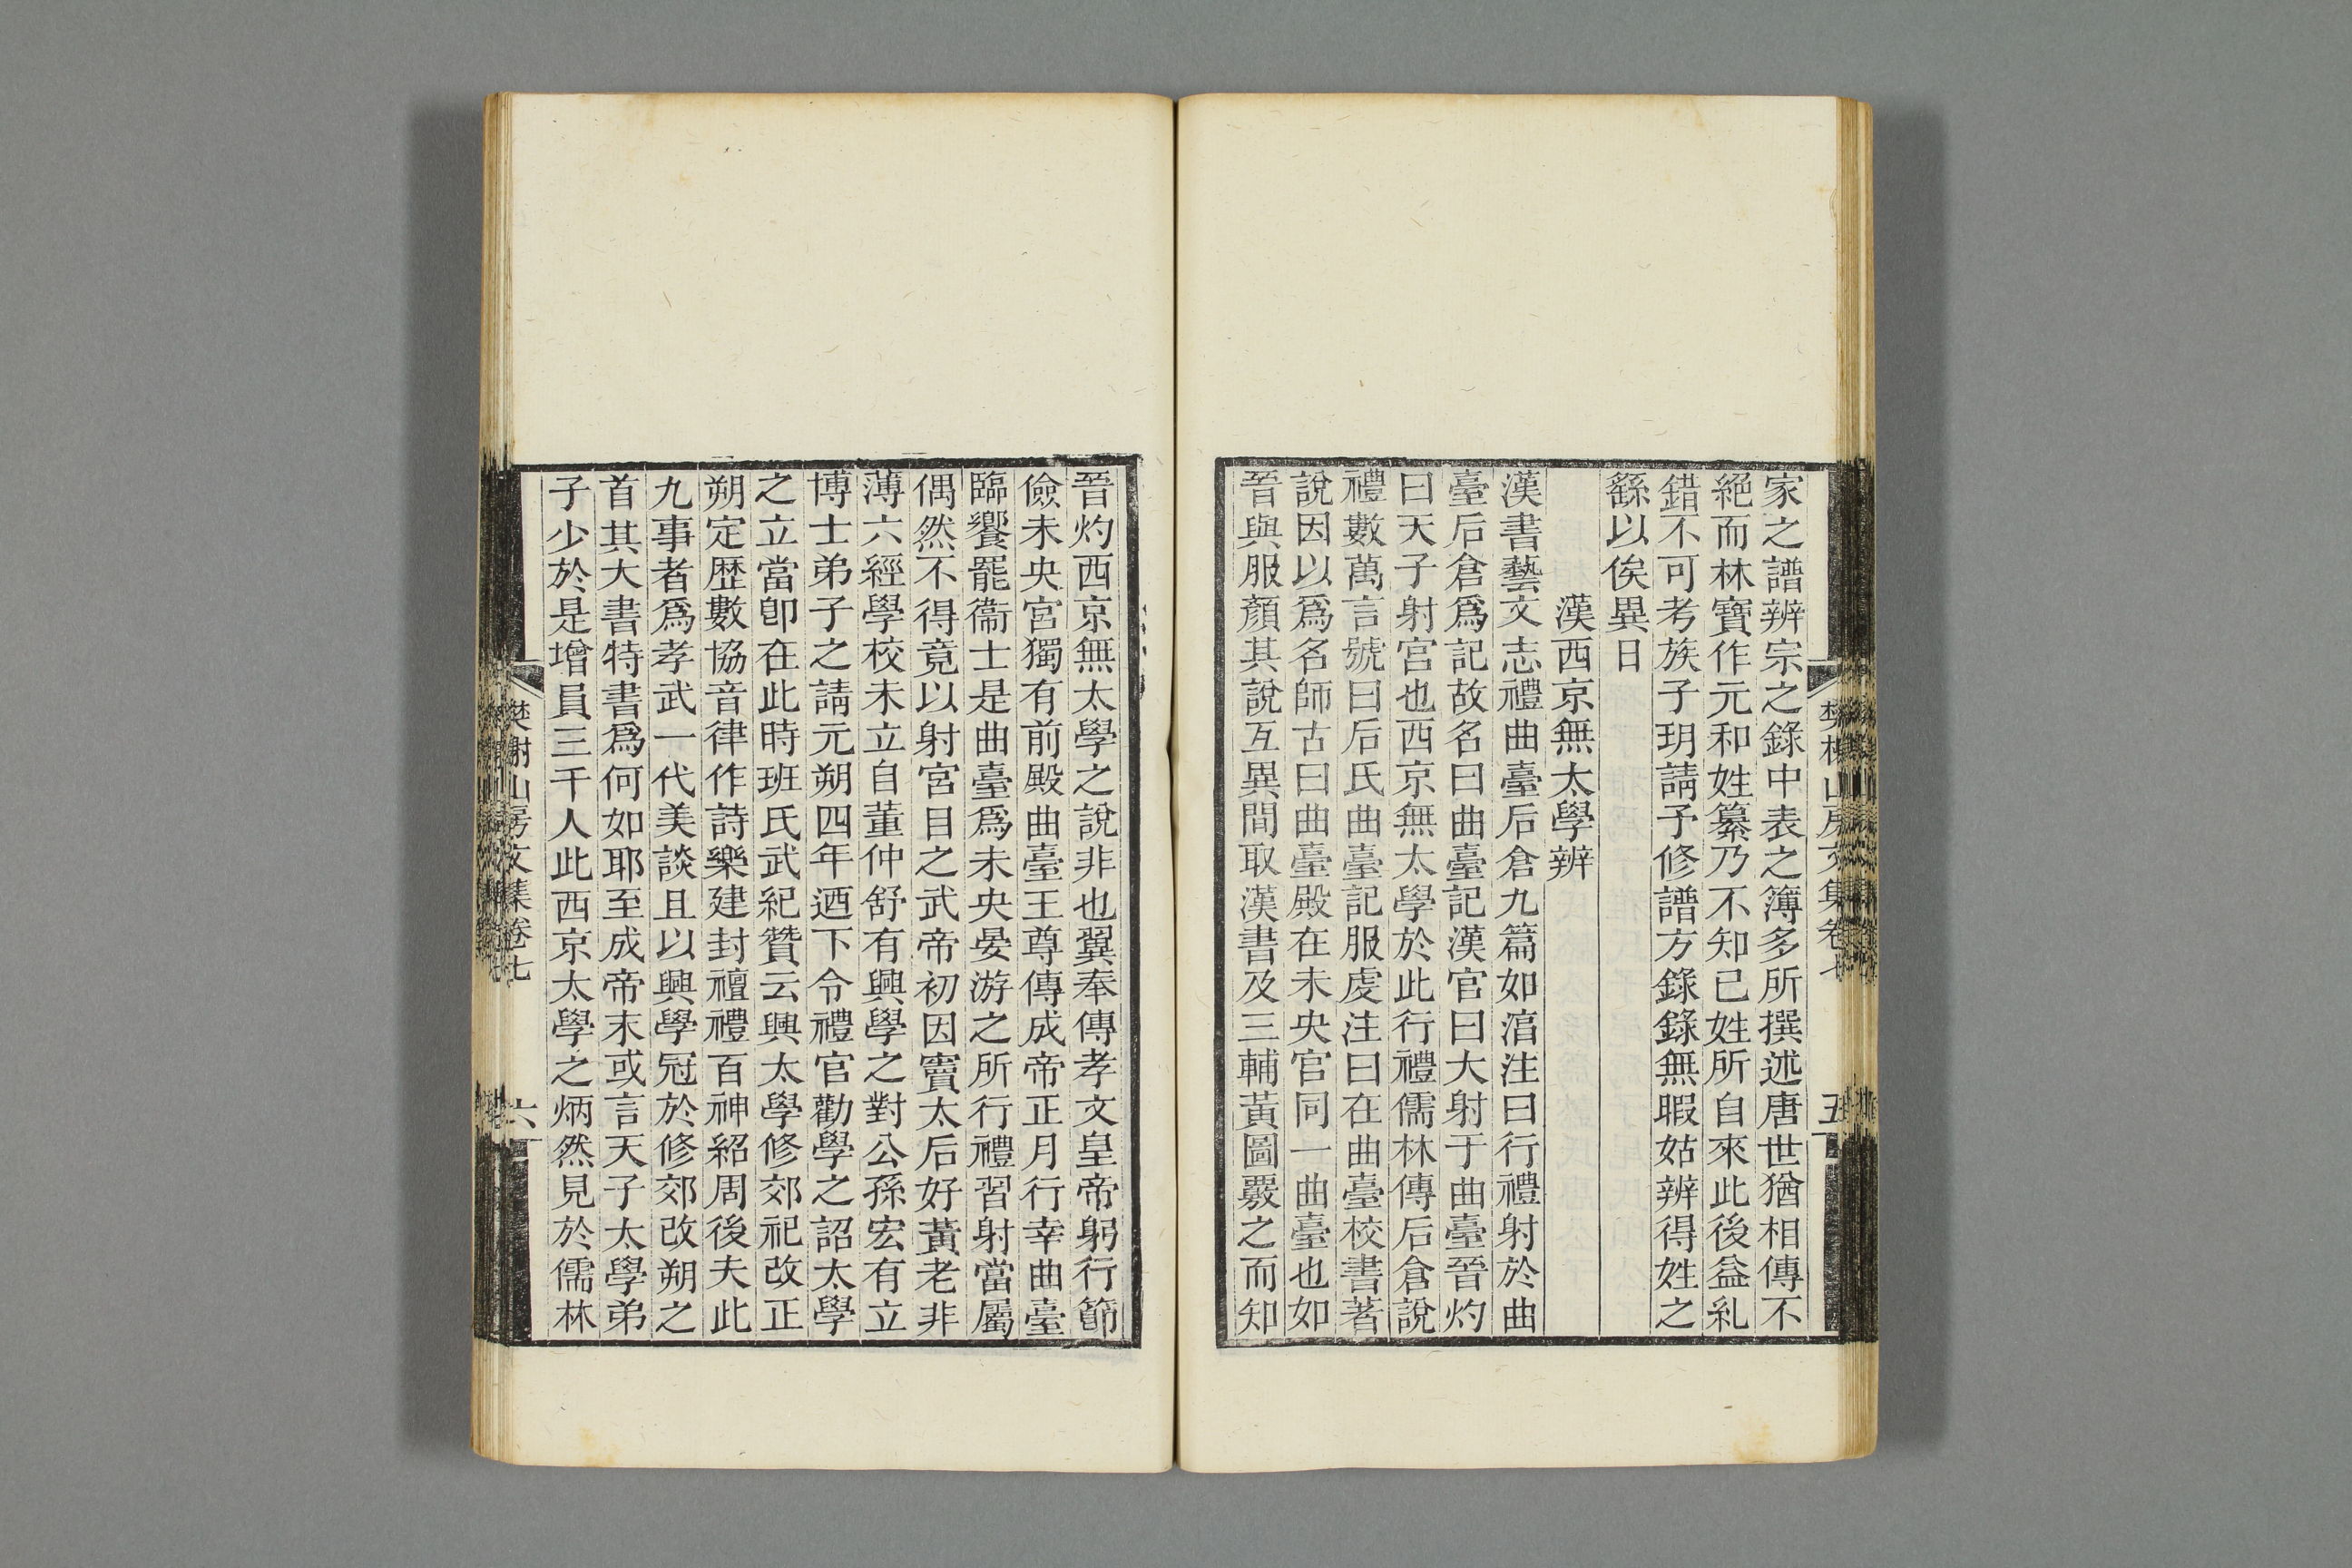 家之譜辨宗之錄中表之簿多所撰述唐世猶相傳不
絕而林寶作元和姓纂乃不知已姓所自來此後益糺
錯不可考族子玥請予修譜方錄錄無暇姑辨得姓之
繇以俟異日
漢西京無太學辨
漢書藝文志禮曲臺后倉九篇如湻注曰行禮射於曲
臺后倉爲記故名曰曲臺記漢官曰大射于曲臺晉灼
曰天子射宮也西京無太學於此行禮儒林傳后倉說
禮數萬言號曰后氏曲臺記服虔注曰在曲臺校書著
說因以爲名師古曰曲臺殿在未央宮同一曲臺也如
晉與服顏其說互異間取漢書及三輔黃圖覈之而知
晉灼西京無太學之說非也翼奉傳孝文皇帝躬行節
儉未央宮獨有前殿曲臺王尊傳成帝正月行幸曲臺
臨饗罷衞士是曲臺爲未央晏游之所行禮習射當屬
偶然不得竟以射宮目之武帝初因竇太后好黃老非
薄六經學校未立自董仲舒有興學之對公孫宏有立
博士弟子之請元朔四年迺下令禮官勸學之詔太學
之立當卽在此時班氏武紀贊云興太學修郊祀改正
朔定歷數協音律作詩樂建封禪禮百神紹周後夫此
九事者爲孝武一代美談且以興學冠於修郊改朔之
首其大書特書爲何如耶至成帝末或言天子太學弟
子少於是增員三千人此西京太學之炳然見於儒林
樊榭山房文集卷七
六